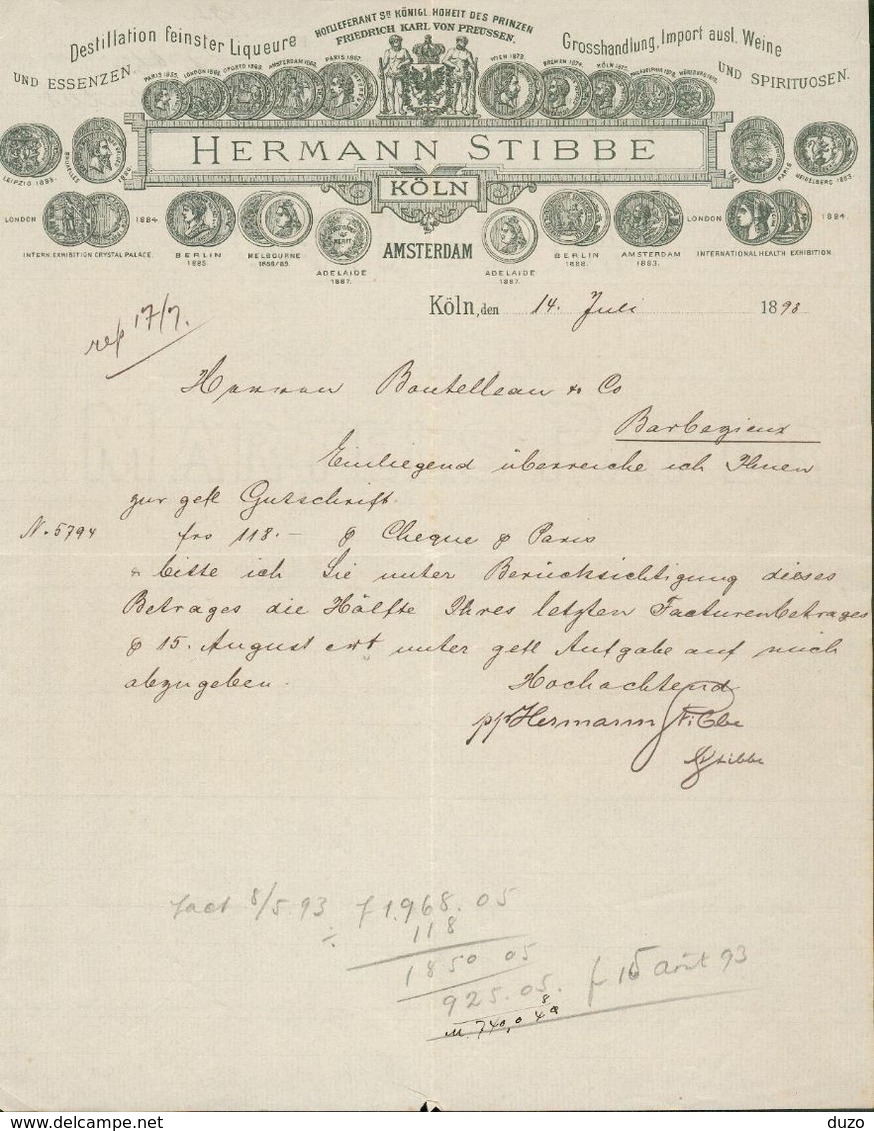 HOFLIEFERANT Sr KÖNIGL. HOHEIT DES PRINZEN
FRIEDRICH KARL VON PREUSSEN.
Destillation feinster Liqueure
UND ESSENZEN.
Grosshandlung, Import ausl. Weine
UND SPIRITUOSEN.
PARIS 1855. LONDON 1862. OPORTO 1865. AMSTERDAM 1869. PARIS 1867.
WIEN 1873. BREMEN 1874. KÖLN 1875. PHILADELPHIA 1876
LEIPZIG 1883.
BRUXELLES
HERMANN STIBBE
KÖLN
PARIS
HEIDELBERG 1883.
LONDON 1884.
INTERN. EXHIBITION CRYSTAL PALACE.
BERLIN
1885.
MELBOURNE
1888/89.
ADELAIDE
1887.
AMSTERDAM
ADELAIDE
1887.
BERLIN
1888.
AMSTERDAM
1883.
LONDON 1884.
INTERNATIONAL HEALTH EXHIBITION.
Köln, den 14. Juli 1893
rep 17/7.
Herren Boutelleau & Co
Barbezieux
Einliegend überreiche ich Ihnen
zur gefl Gutschrift.
N. 5794 frs 118.- Cheque Paris
& bitte ich Sie unter Berücksichtigung dieses
Betrages die Hälfte Ihres letzten Facturenbetrages
15. August crt unter gefl Aufgabe auf mich
abzugeben.
Hochachtend
pp Hermann Stibbe
Stibbe
fact 8/5.93 f 1.968.05
÷ 118
1850 05
925.05. f 15 Août 93
M. 740,0
duzo